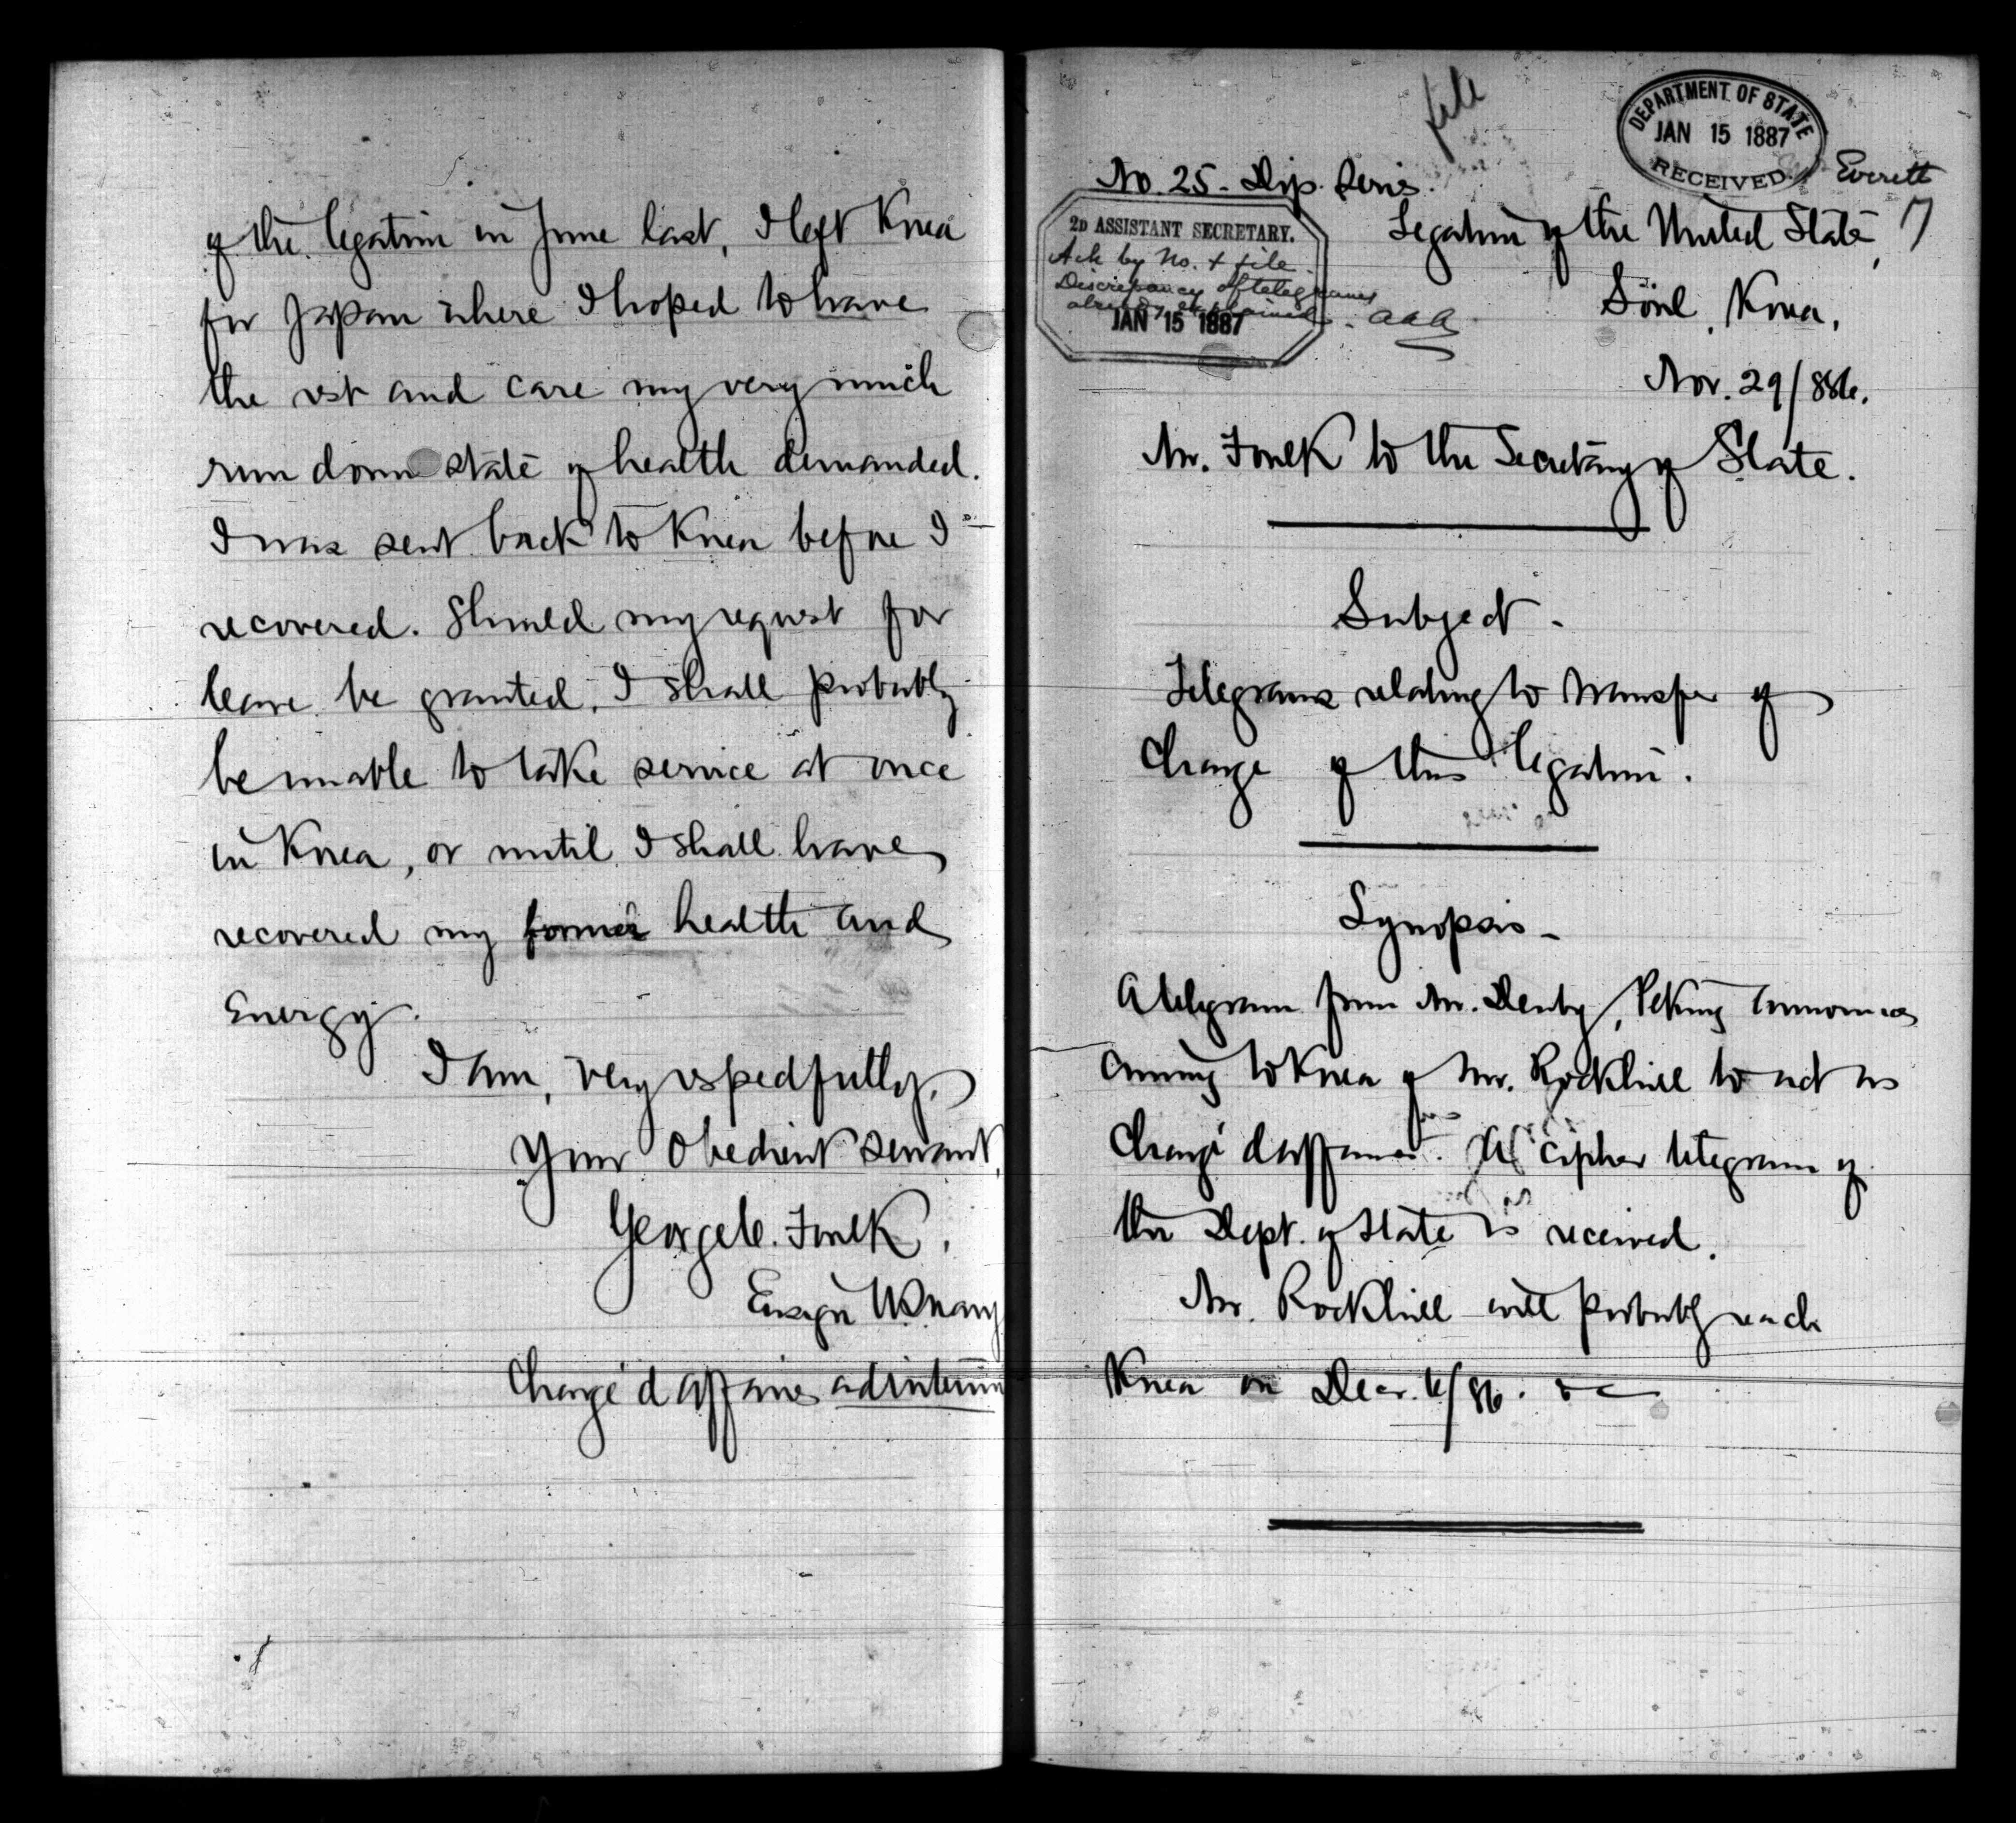 of the legation in June last, I left Korea
for Japan where I hoped to have
the rest and care my very much
run down state of health demanded.
I was sent back to Korea before I
recovered. Should my request for
leave be granted, I shall probably
be unable to take service at once
in Korea, or until I shall have
recovered my former health and
Energy.
I am, very respectfully,
Your Obedient servant,
George C. Foulk,
Ensign U.S. Navy
Chargé d'affaires ad interim
file
DEPARTMENT OF STATE
JAN 15 1887
RECEIVED
Everett
No. 25 - Dip. Series.
2D ASSISTANT SECRETARY.
Ack by No. + file.
Discrepancy of telegrams
already explained. AAA
JAN 15 1887
Legation of the United States, 7
Söul, Korea,
Nov. 29/886.
Mr. Foulk to the Secretary of State.
Subject -
Telegrams relating to transfer of
Charge of this legation.
Synopsis -
A telegram from Mr. Denby, Peking announces
coming to Korea of Mr. Rockhill to act as
Chargé d'affaires. A cipher telegram of
the Dept. of State is received.
Mr. Rockhill will probably reach
Korea on Dec. 6/86.